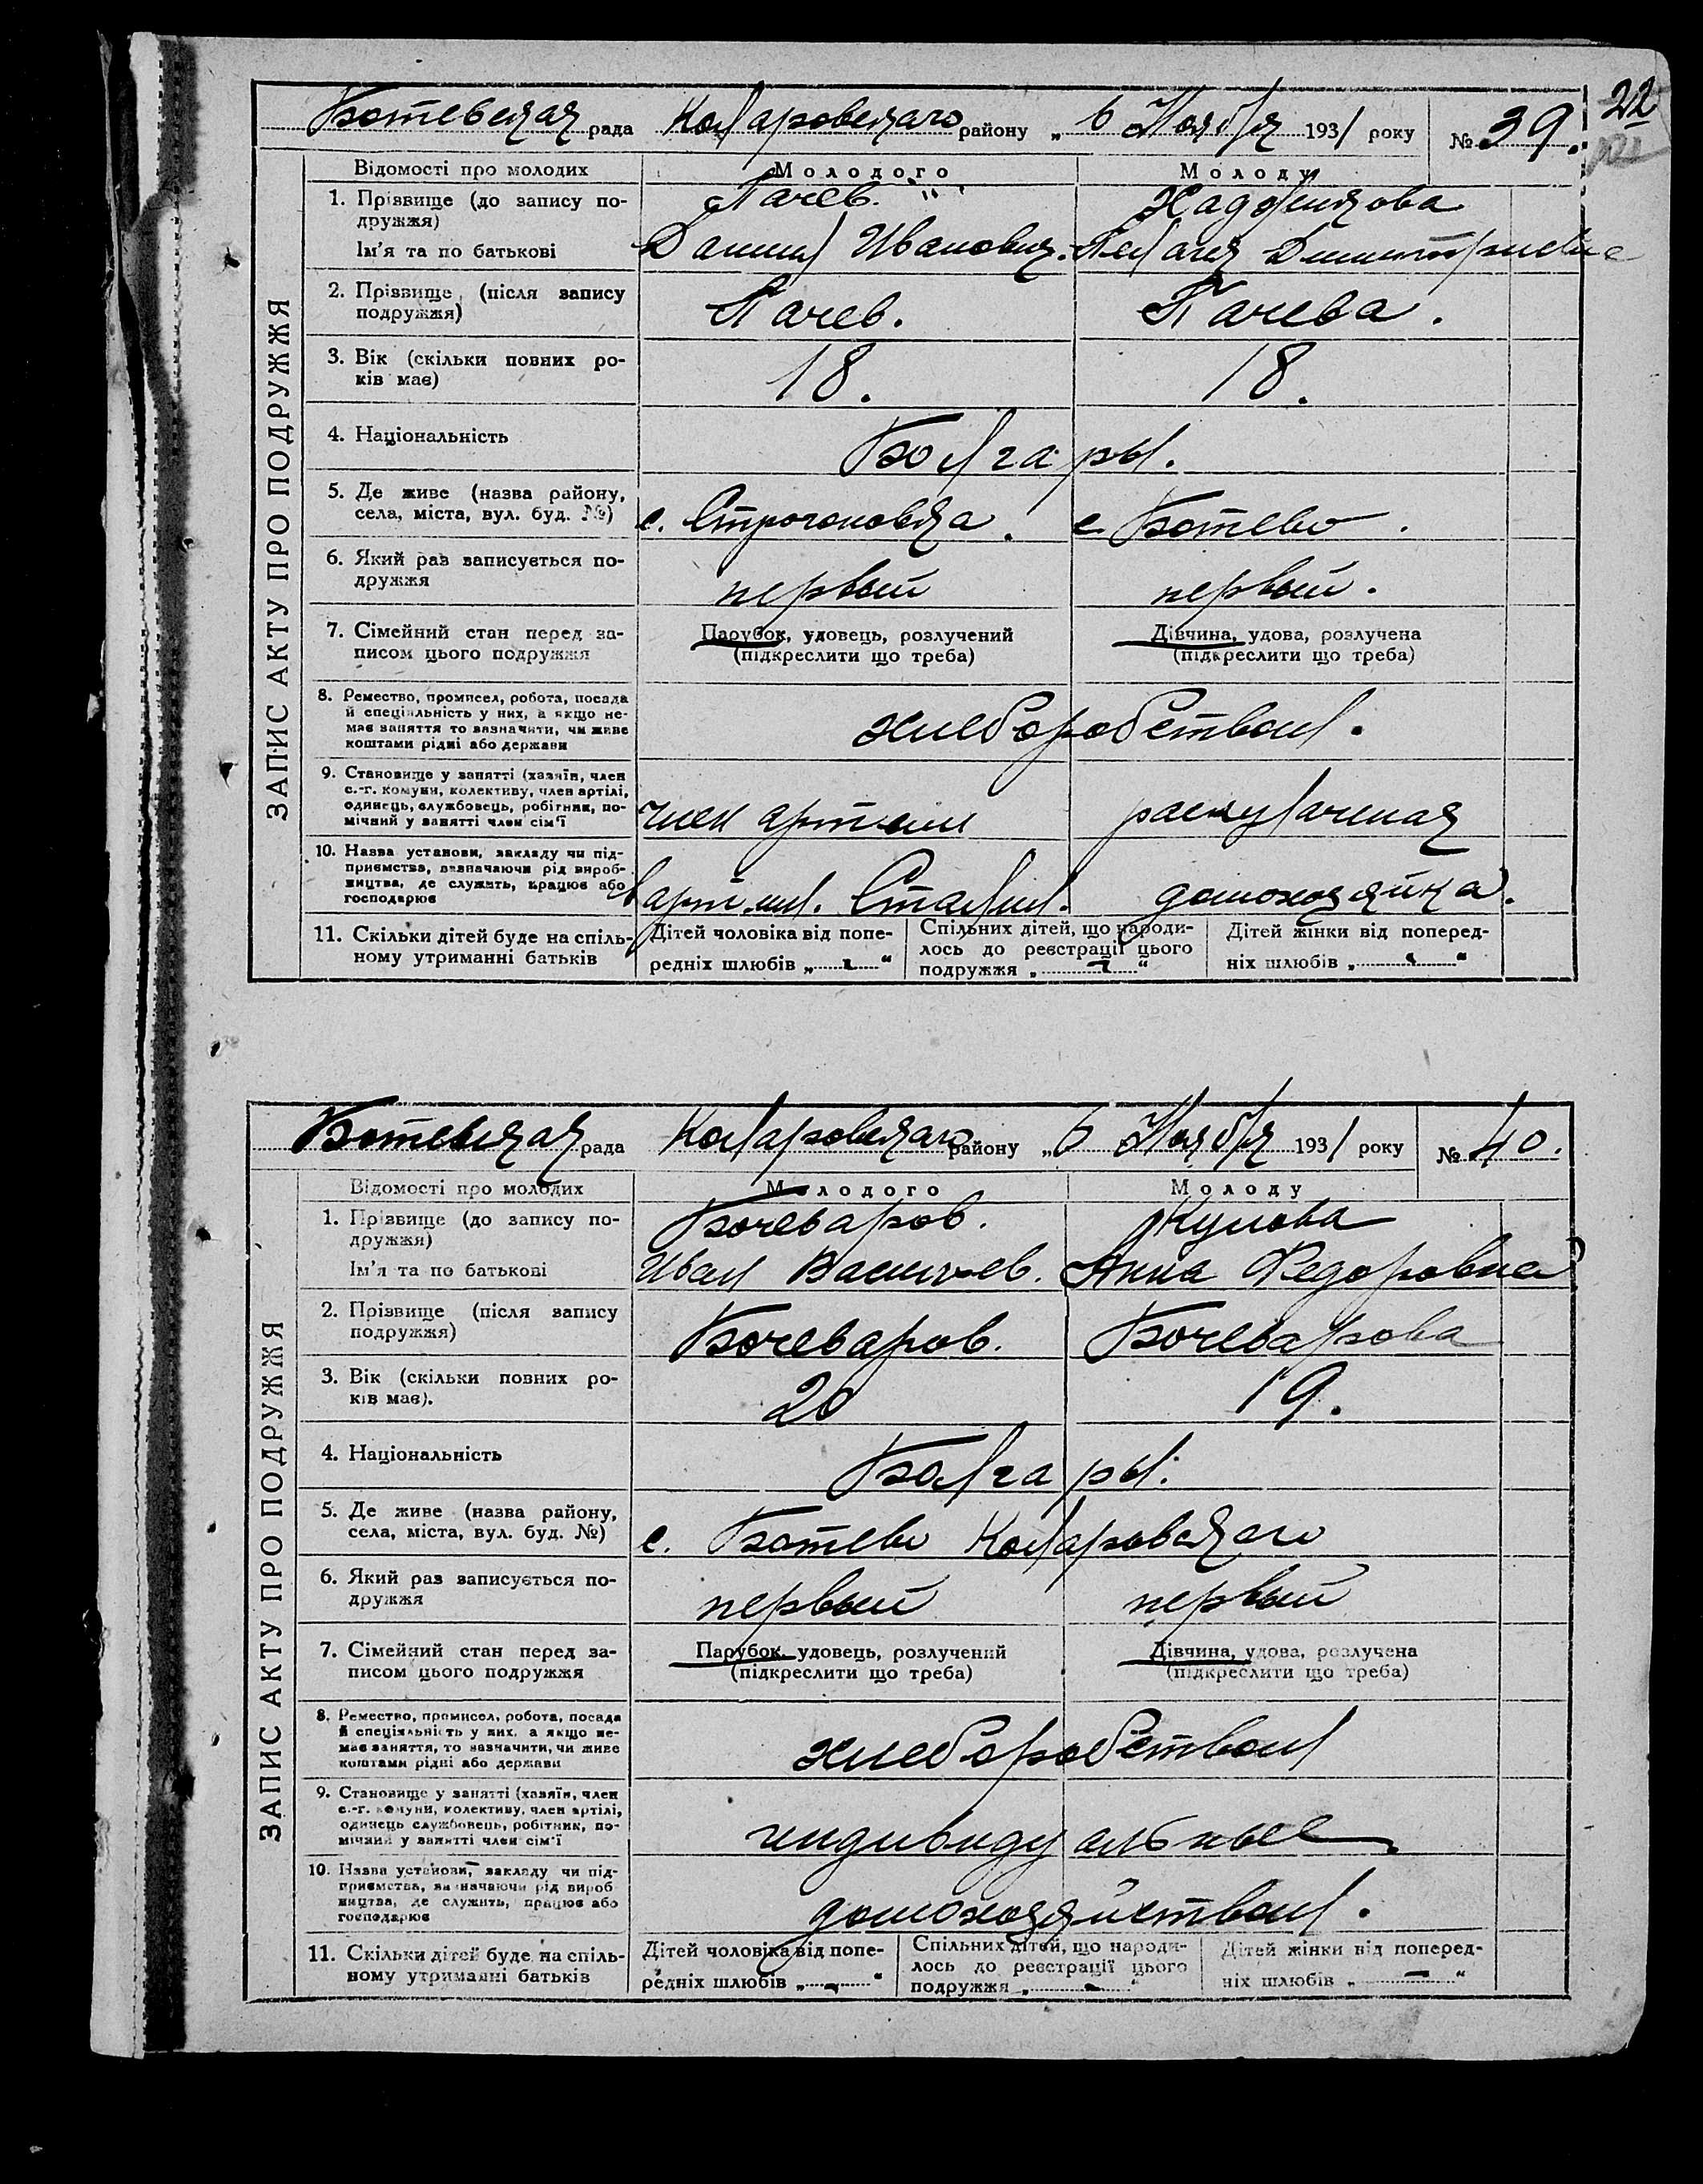 22
Ботевская рада Коларовского району „ 6 Ноября 1931 року № 39.
ЗАПИС АКТУ ПРО ПОДРУЖЖЯ
Відомості про молодих Молодого Молоду
1. Прізвище (до запису по-
дружжя) Пачев.
Ім'я та по батькові Данил Иванович. Дмитриевна
2. Прізвище (після запису
подружжя) Пачев. Пачева.
3. Вік (скільки повних ро-
ків має) 18. 18.
4. Національність Болгары.
5. Де живе (назва району,
села, міста, вул. буд. №) с. Строгоновка. с Ботево.
6. Який раз записується по-
дружжя первый первый.
7. Сімейний стан перед за- Парубок, удовець, розлучений Дівчина, удова, розлучена
писом цього подружжя (підкреслити що треба) (підкреслити що треба)
8. Ремество, промисел, робота, посада
й спеціяльність у них, а якщо не-
має заняття то зазначити, чи живе
коштами рідні або держави хлеборобством.
9. Становище у занятті (хазяїн, член
с.-г. комуни, колективу, член артілі,
одинець, службовець, робітник, по-
мічний у занятті член сім'ї член артели раскулаченая
10. Назва установи, закладу чи під-
приємства, визначаючи рід вироб-
ництва, де служить, працює або
господарює в артели. Сталин. домохозяйка.
11. Скільки дітей буде на спіль- Дітей чоловіка від попе- Спільних дітей, що народи- Дітей жінки від поперед-
ному утриманні батьків редніх шлюбів „ - “ лось до реєстрації цього ніх шлюбів „ - “
подружжя „ - “
Ботевская рада Коларовского району „ 6 Ноября 1931 року № 40.
ЗАПИС АКТУ ПРО ПОДРУЖЖЯ
Відомості про молодих Молодого Молоду
1. Прізвище (до запису по-
дружжя) Бочеваров.
Ім'я та по батькові Иван Васильев. Анна Федоровна
2. Прізвище (після запису
подружжя) Бочеваров. Бочеварова
3. Вік (скільки повних ро-
ків має). 20 19.
4. Національність Болгары.
5. Де живе (назва району,
села, міста, вул. буд. №) с. Ботево Коларовского
6. Який раз записується по-
дружжя первый первый
7. Сімейний стан перед за- Парубок, удовець, розлучений Дівчина, удова, розлучена
писом цього подружжя (підкреслити що треба) (підкреслити що треба)
8. Ремество, промисел, робота, посада
й спеціяльність у них, а якщо не-
має заняття, то зазначити, чи живе
коштами рідні або держави хлеборобством
9. Становище у занятті (хазяїн, член
с.-г. комуни, колективу, член артілі,
одинець службовець, робітник, по-
мічний у занятті член сім'ї индивидуальные
10. Назва установи, закладу чи під-
приємства, визначаючи рід вироб
ництва, де служить, працює або
господарює домохозяйством.
11. Скільки дітей буде на спіль- Дітей чоловіка від попе- Спільних дітей, що народи- Дітей жінки від поперед-
ному утриманні батьків редніх шлюбів „ - “ лось до реєстрації цього ніх шлюбів „ - “
подружжя „ - “